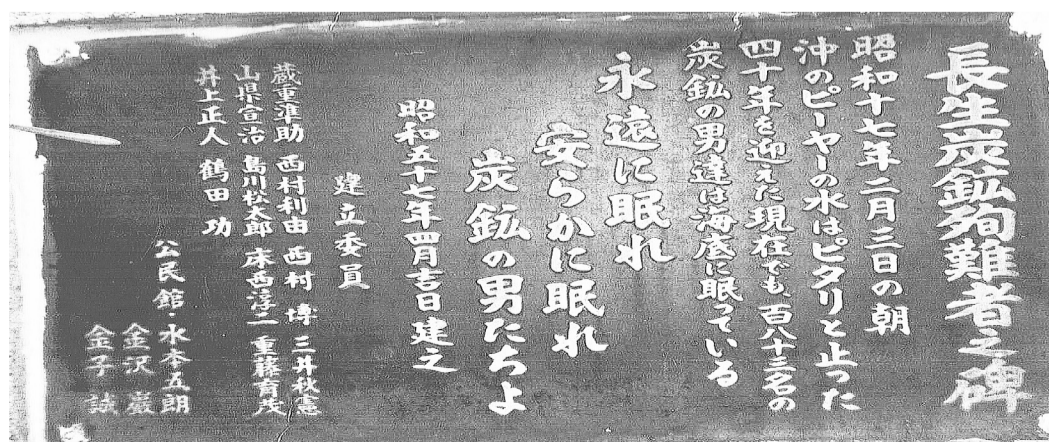 長生炭鉱殉難者之碑
昭和十七年二月三日の朝
沖のピーヤーの水はピタリと止った
四十年を迎えた現在でも、百八十三名の
炭鉱の男達は海底に眠っている
永遠に眠れ
安らかに眠れ
炭鉱の男たちよ
昭和五十七年四月吉日建之
建立委員
蔵重進助 西村利由 西村 博 三井秋憲
山県宣治 島川松太郎 床西淳二 重藤育茂
井上正人 鶴田 功
公民館・水本五朗
金沢 巌
金子 誠